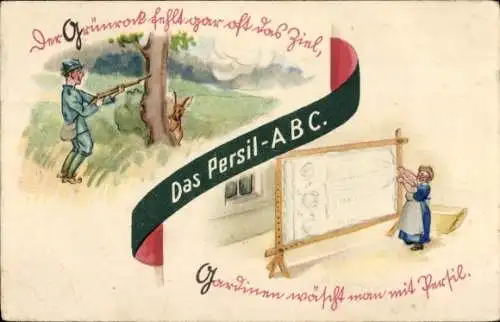 Der Grünrock fehlt gar oft das Ziel,
Das Persil-ABC.
Gardinen wäscht man mit Persil.